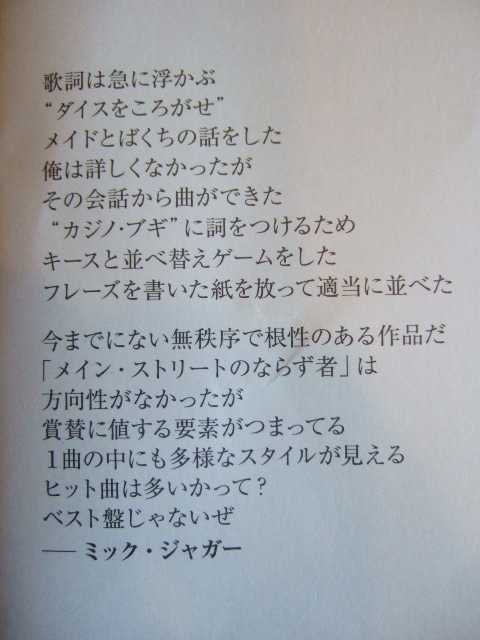 歌詞は急に浮かぶ
“ダイスをころがせ”
メイドとばくちの話をした
俺は詳しくなかったが
その会話から曲ができた
“カジノ・ブギ”に詞をつけるため
キースと並べ替えゲームをした
フレーズを書いた紙を放って適当に並べた
今までにない無秩序で根性のある作品だ
「メイン・ストリートのならず者」は
方向性がなかったが
賞賛に値する要素がつまってる
１曲の中にも多様なスタイルが見える
ヒット曲は多いかって？
ベスト盤じゃないぜ
── ミック・ジャガー